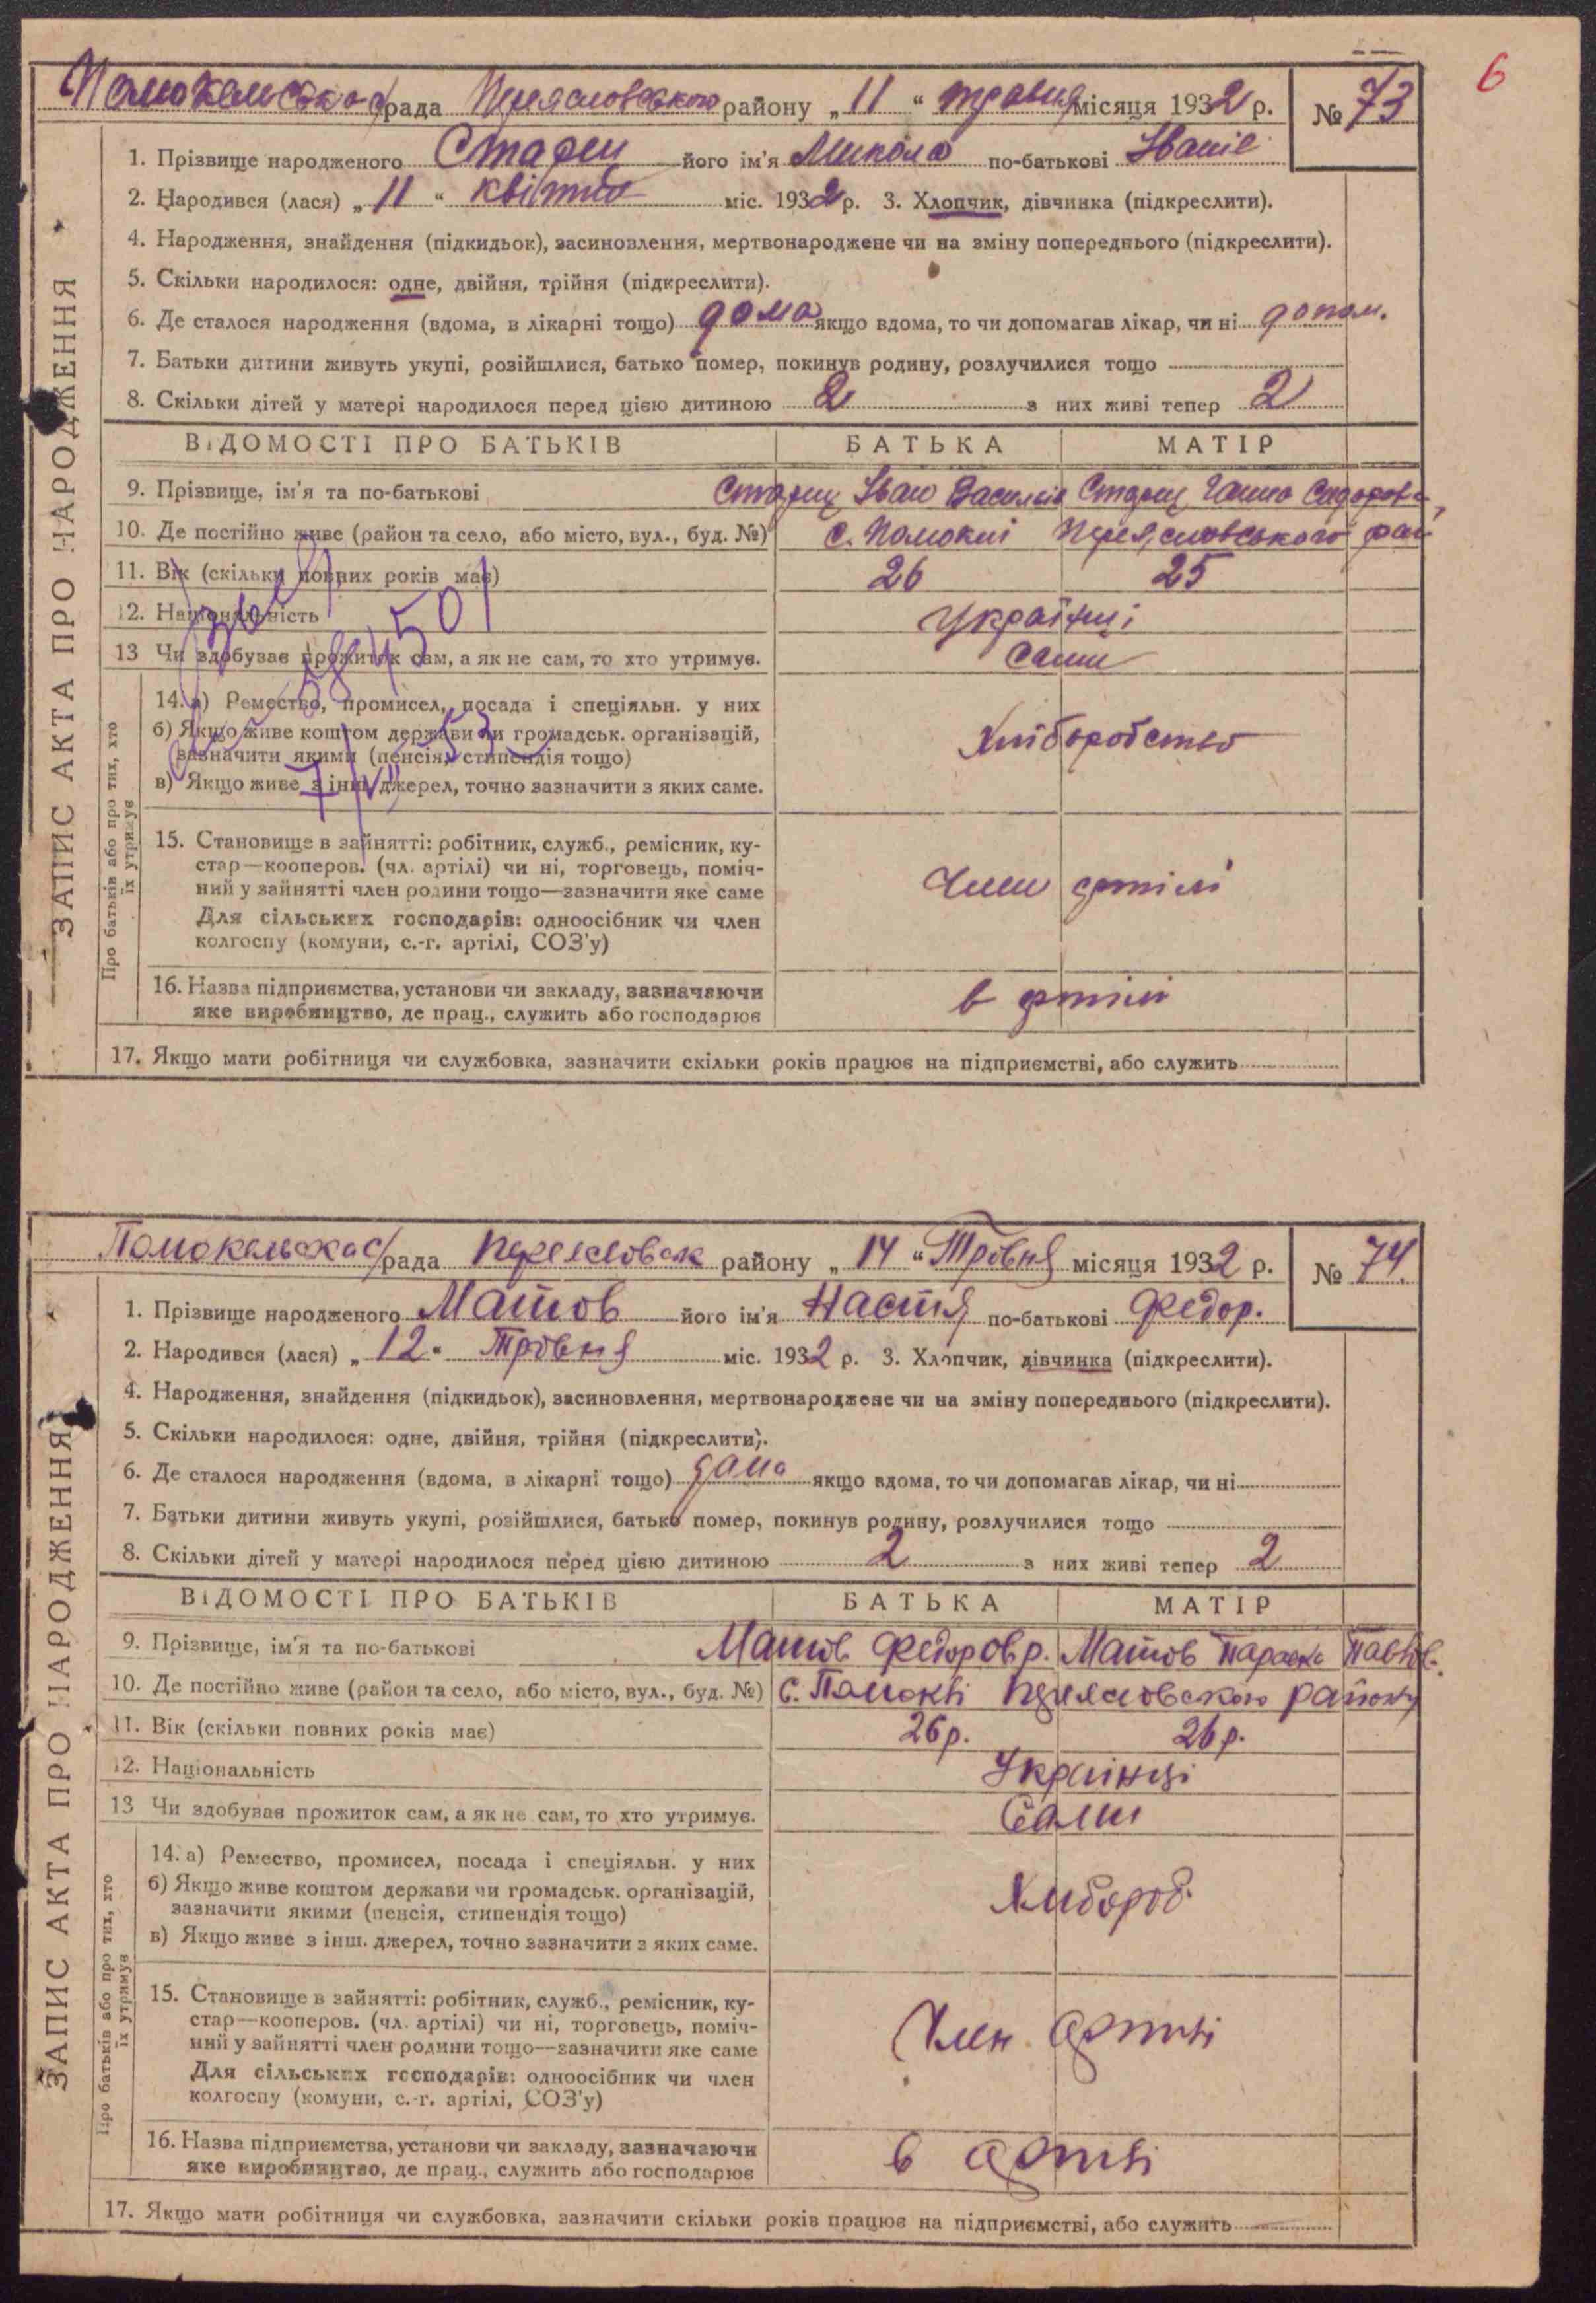 6
Помокельська с/рада Переяславського району „11“ травня місяця 1932 р. № 73
1. Прізвище народженого Старец його ім'я Микола по-батькові
2. Народився (лася) „11“ квітня міс. 1932 р. 3. Хлопчик, дівчинка (підкреслити).
4. Народження, знайдення (підкидьок), засиновлення, мертвонароджене чи на зміну попереднього (підкреслити).
5. Скільки народилося: одне, двійня, трійня (підкреслити).
6. Де сталося народження (вдома, в лікарні тощо) дома якщо вдома, то чи допомагав лікар, чи ні допом.
7. Батьки дитини живуть укупі, розійшлися, батько помер, покинув родину, розлучилися тощо
8. Скільки дітей у матері народилося перед цією дитиною 2 з них живі тепер 2
ВІДОМОСТІ ПРО БАТЬКІВ БАТЬКА МАТІР
9. Прізвище, ім'я та по-батькові Старец Іван Старец Ганна
10. Де постійно живе (район та село, або місто, вул., буд. №) с. Помоклі Переяславського рай
11. Вік (скільки повних років має) 26 25
12. Національність Українці
13 Чи здобуває прожиток сам, а як не сам, то хто утримує. Сами
14. а) Ремество, промисел, посада і спеціяльн. у них
б) Якщо живе коштом держави чи громадськ. організацій,
зазначити якими (пенсія, стипендія тощо) Хліборобство
в) Якщо живе з інш. джерел, точно зазначити з яких саме.
15. Становище в зайнятті: робітник, служб., ремісник, ку-
стар—кооперов. (чл. артілі) чи ні, торговець, поміч-
ний у зайнятті член родини тощо—зазначити яке саме Члени артілі
Для сільських господарів: одноосібник чи член
колгоспу (комуни, с.-г. артілі, СОЗ'у)
16. Назва підприємства, установи чи закладу, зазначаючи
яке виробництво, де прац., служить або господарює в артілі
17. Якщо мати робітниця чи службовка, зазначити скільки років працює на підприємстві, або служить
ЗАПИС АКТА ПРО НАРОДЖЕННЯ
Про батьків або про тих, хто
їх утримує
Помокельська с/рада Переясловськ району „14“ Тровня місяця 1932 р. № 74.
1. Прізвище народженого Матов його ім'я Настя по-батькові Федор.
2. Народився (лася) „12“ Тровня міс. 1932 р. 3. Хлопчик, дівчинка (підкреслити).
4. Народження, знайдення (підкидьок), засиновлення, мертвонароджене чи на зміну попереднього (підкреслити).
5. Скільки народилося: одне, двійня, трійня (підкреслити).
6. Де сталося народження (вдома, в лікарні тощо) дома якщо вдома, то чи допомагав лікар, чи ні
7. Батьки дитини живуть укупі, розійшлися, батько помер, покинув родину, розлучилися тощо
8. Скільки дітей у матері народилося перед цією дитиною 2 з них живі тепер 2
ВІДОМОСТІ ПРО БАТЬКІВ БАТЬКА МАТІР
9. Прізвище, ім'я та по-батькові Матов Федор Матов Параска Павлов.
10. Де постійно живе (район та село, або місто, вул., буд. №) с. Помоклі Переясловского району
11. Вік (скільки повних років має) 26 р. 26 р.
12. Національність Українці
13 Чи здобуває прожиток сам, а як не сам, то хто утримує. Сами
14. а) Ремество, промисел, посада і спеціяльн. у них
б) Якщо живе коштом держави чи громадськ. організацій,
зазначити якими (пенсія, стипендія тощо) Хлібороб.
в) Якщо живе з інш. джерел, точно зазначити з яких саме.
15. Становище в зайнятті: робітник, служб., ремісник, ку-
стар—кооперов. (чл. артілі) чи ні, торговець, поміч-
ний у зайнятті член родини тощо—зазначити яке саме Член артілі
Для сільських господарів: одноосібник чи член
колгоспу (комуни, с.-г. артілі, СОЗ'у)
16. Назва підприємства, установи чи закладу, зазначаючи
яке виробництво, де прац., служить або господарює в артілі
17. Якщо мати робітниця чи службовка, зазначити скільки років працює на підприємстві, або служить
ЗАПИС АКТА ПРО НАРОДЖЕННЯ
Про батьків або про тих, хто
їх утримує